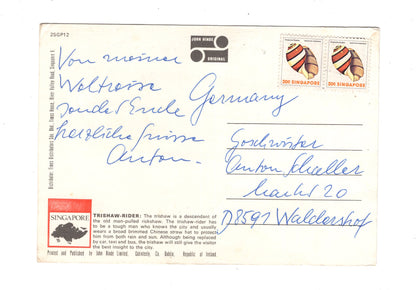 2SGP12
JOHN HINDE
ORIGINAL
20c SINGAPORE
20c SINGAPORE
Von meiner
Weltreise
sendet Ende
herzliche Grüsse
Anton.
Germany
Geschwister
Anton Schaller
Markt 20
D8591 Waldershof
SINGAPORE
TRISHAW-RIDER: The trishaw is a descendant of
the old man-pulled rickshaw. The trishaw-rider has
to be a tough man who knows the city and usually
wears a broad brimmed Chinese straw hat to protect
him from both rain and sun. Although being replaced
by car, taxi and bus, the trishaw will still give the visitor
the best insight to the city.
Printed and Published by John Hinde Limited, Cabinteely, Co. Dublin, Republic of Ireland.